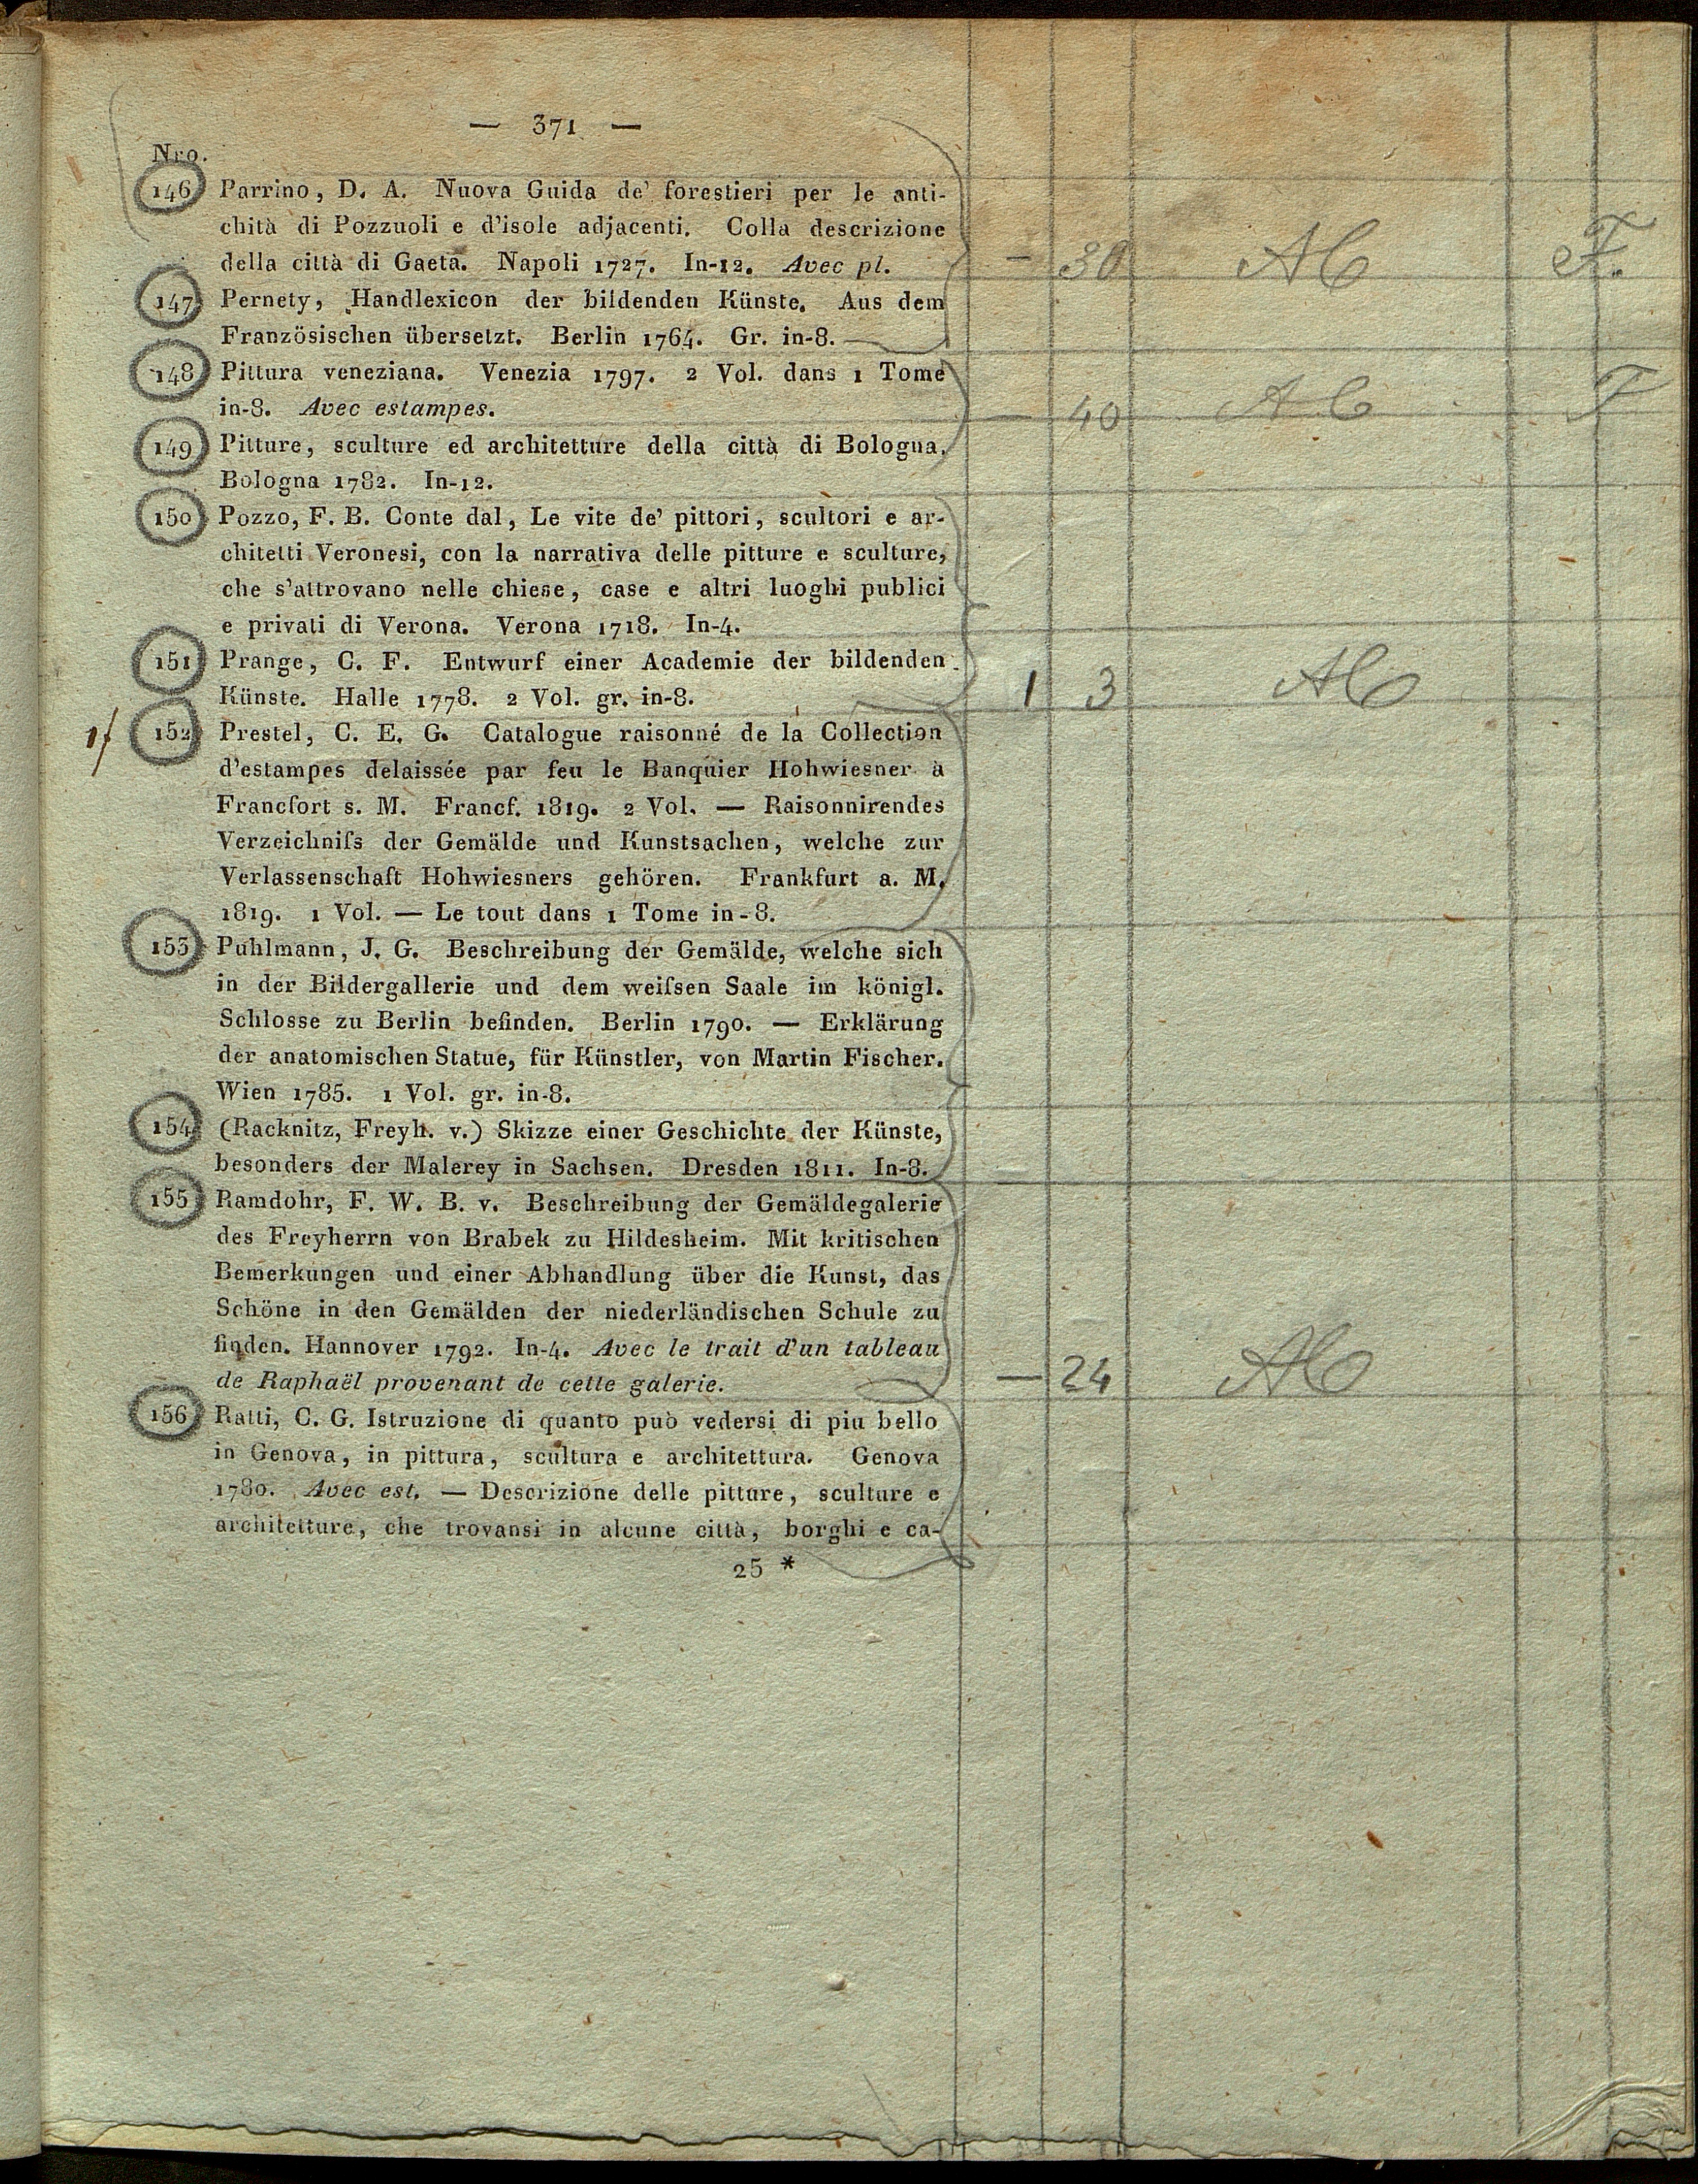 — 371 —
Nro.
146 Parrino, D. A. Nuova Guida de' forestieri per le anti-
chità di Pozzuoli e d'isole adjacenti. Colla descrizione
della città di Gaeta. Napoli 1727. In-12. Avec pl. — 30 F.
147 Pernety, Handlexicon der bildenden Künste. Aus dem
Französischen übersetzt. Berlin 1764. Gr. in-8.
148 Pittura veneziana. Venezia 1797. 2 Vol. dans 1 Tome
in-8. Avec estampes. — 40 F
149 Pitture, sculture ed architetture della città di Bologna.
Bologna 1782. In-12.
150 Pozzo, F. B. Conte dal, Le vite de' pittori, scultori e ar-
chitetti Veronesi, con la narrativa delle pitture e sculture,
che s'attrovano nelle chiese, case e altri luoghi publici
e privati di Verona. Verona 1718. In-4.
151 Prange, C. F. Entwurf einer Academie der bildenden
Künste. Halle 1778. 2 Vol. gr. in-8. 1 3
152 Prestel, C. E. G. Catalogue raisonné de la Collection
d'estampes delaissée par feu le Banquier Hohwiesner à
Francfort s. M. Francf. 1819. 2 Vol. — Raisonnirendes
Verzeichniſs der Gemälde und Kunstsachen, welche zur
Verlassenschaft Hohwiesners gehören. Frankfurt a. M.
1819. 1 Vol. — Le tout dans 1 Tome in-8.
153 Puhlmann, J. G. Beschreibung der Gemälde, welche sich
in der Bildergallerie und dem weiſsen Saale im königl.
Schlosse zu Berlin befinden. Berlin 1790. — Erklärung
der anatomischen Statue, für Künstler, von Martin Fischer.
Wien 1785. 1 Vol. gr. in-8.
154 (Racknitz, Freyh. v.) Skizze einer Geschichte der Künste,
besonders der Malerey in Sachsen. Dresden 1811. In-8.
155 Ramdohr, F. W. B. v. Beschreibung der Gemäldegalerie
des Freyherrn von Brabek zu Hildesheim. Mit kritischen
Bemerkungen und einer Abhandlung über die Kunst, das
Schöne in den Gemälden der niederländischen Schule zu
finden. Hannover 1792. In-4. Avec le trait d'un tableau
de Raphaël provenant de cette galerie. — 24
156 Ratti, C. G. Istruzione di quanto può vedersi di piu bello
in Genova, in pittura, scultura e architettura. Genova
1780. Avec est. — Descrizione delle pitture, sculture e
architetture, che trovansi in alcune città, borghi e ca-
25 *